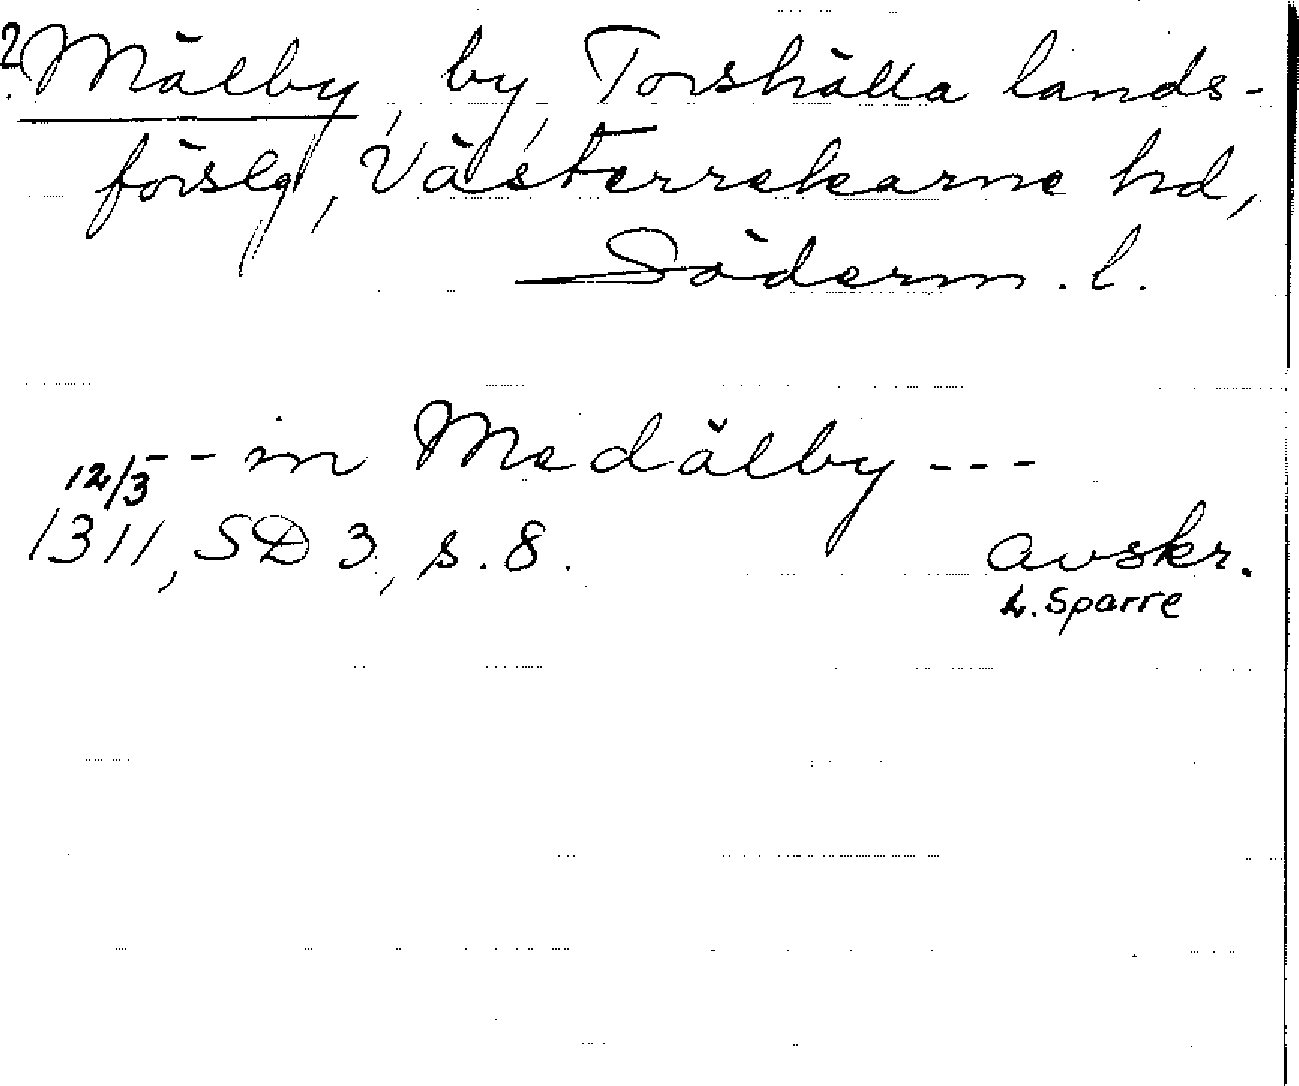 2. Mälby, by, Torshälla lands-
förslg, Västerrekarne hd,
Söderm. l.
- - in Medälby ---
12/5
1311, SD 3, s. 8. avskr.
L. Sparre